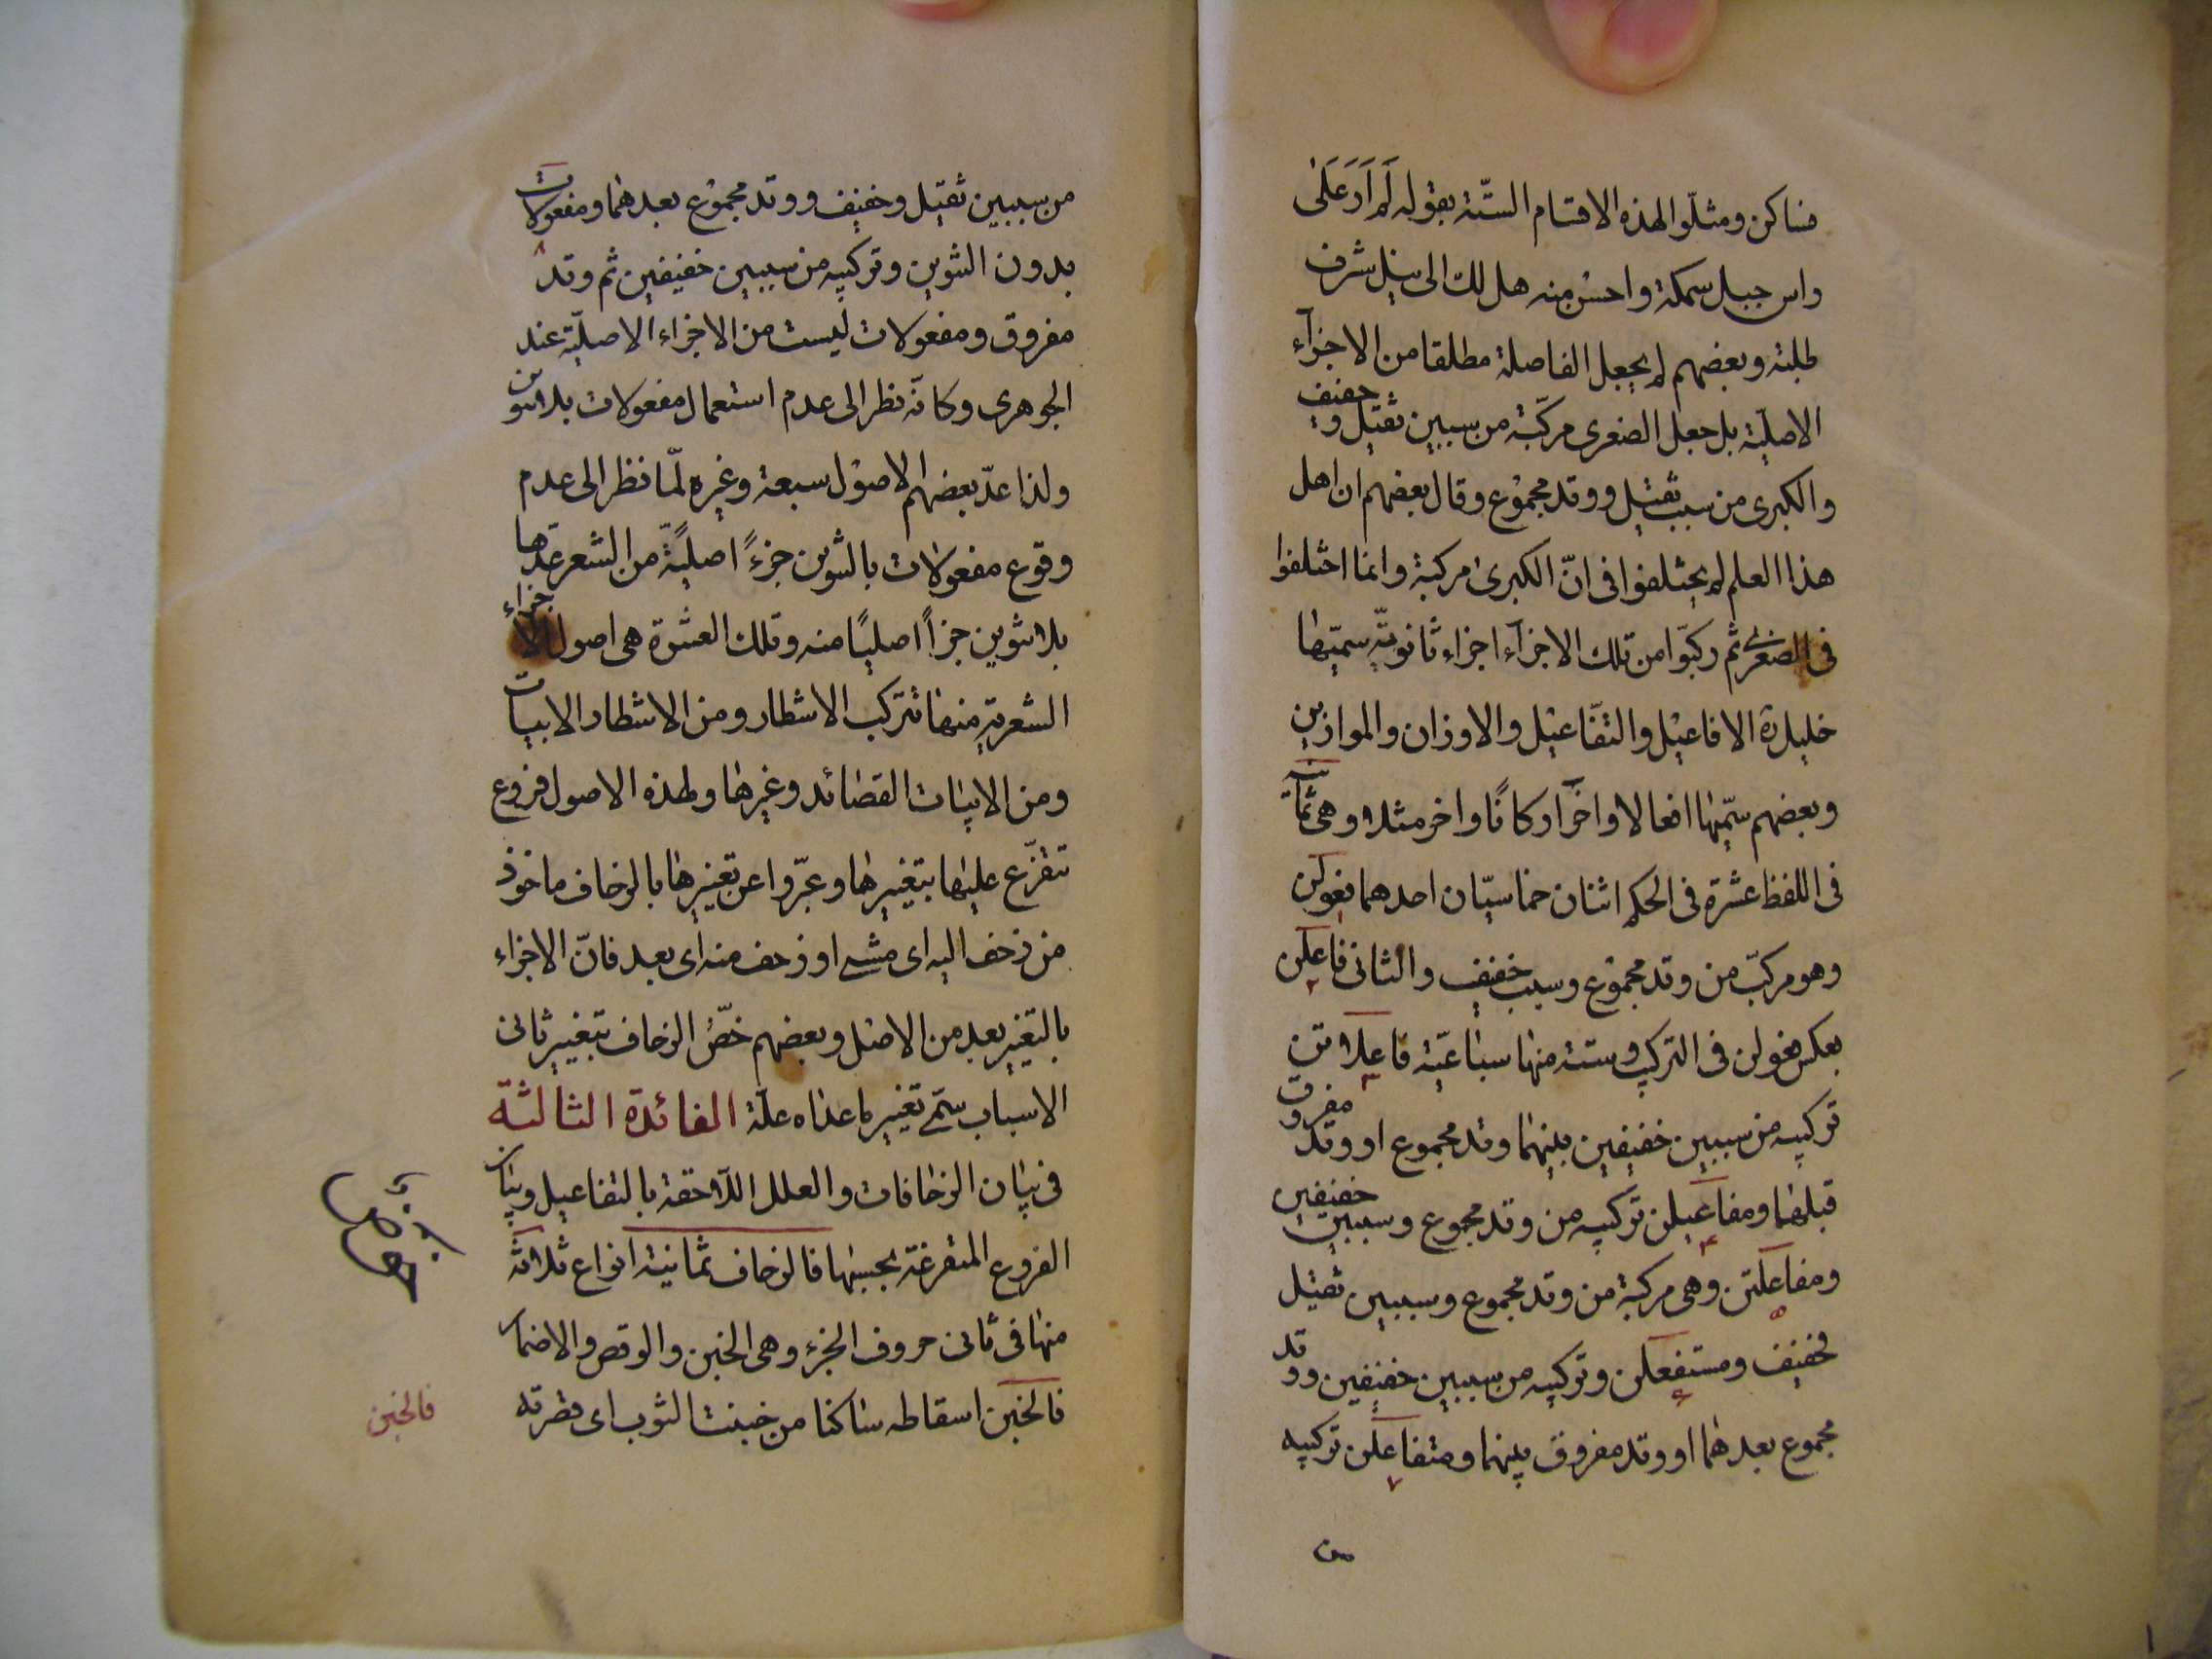 فساكن ومثلوا لهذه الاقسام الستّة بقوله لَم اَرَ عَلَى
راس جبل سمكة واحسن منه هل لك الى نيل شرف
طلبته وبعضهم لم يجعل الفاصلة مطلقا من الاجزآء
الاصلية بل جعل الصغرى مركّبة من سببين ثقيل وخفيف
والكبرى من سبب ثقيل ووتد مجموع وقال بعضهم ان اهل
هذا العلم لم يختلفوا فى انّ الكبرى مركبة وانما اختلفوا
فى الصغرى ثم ركبّوا من تلك الاجزآء اجزاء ثانويّة سميّها
خليل ره الافاعيل والتفّاعيل والاوزان والموازين
وبعضهم سمّيها افعالا واخر اركانًا واخر مثلا وهى ثمانية
فى اللفظ عشرة فى الحكم اثنان خماسيّان احدهما فعولن
وهو مركبّ من وتد مجموع وسبب خفيف والثانى فاعلن ٢
بعكس فعولن فى التركيب وستة منها سباعيّة فاعلاتن ٣
تركيبه من سببين خفيفين بينهما وتد مجموع او وتد مفروق
قبلهما ومفاعيلن ٤ تركيبه من وتد مجموع وسببين خفيفين
ومفاعلتن ٥ وهى مركبة من وتد مجموع وسببين ثقيل
فخفيف ومستفعلن ٦ وتركيبه من سببين خفيفين ووتد
مجموع بعدهما او وتد مفروق بينهما ومتفاعلن ٧ تركيبه
من
من سببين ثقيل وخفيف ووتد مجموع بعدهما ومفعولات ٨
بدون التنوين وتركيبه من سببين خفيفين ثم وتد
مفروق ومفعولات ليست من الاجزاء الاصليّة عند
الجوهرى وكانّه نظر الى عدم استعمال مفعولات بلا تنوين
ولذا عدّ بعضهم الاصول سبعة وغيره لمّا نظر الى عدم
وقوع مفعولات بالتنوين جزءً اصليًّة من الشعر عدّها
بلا تنوين جزأً اصليًا منه وتلك العشرة هى اصول الاجزاء
الشعرية منها تتركب الاشطار ومن الاشطار الابيات
ومن الابيات القصائد وغيرها ولهذه الاصول فروع
تتفرّع عليها بتغييرها وعبّروا عن تغييرها بالزحاف ماخوذ
من زحف اليه اى مشى او زحف منه اى بعد فانّ الاجزاء
بالتغيير بعد من الاصل وبعضهم خصّ الزحاف بتغيير ثانى
الاسباب سمّى تغيير ما عداه علّة الفائدة الثالثة
فى بيان الزحافات والعلل اللاّحقة بالتفاعيل وبيان
الفروع المتفرعة بحسبها فالزحاف ثمانية انواع ثلاثة
منها فى ثانى حروف الجزء وهى الخبن والوقص والاضمار
فالخبن اسقاطه ساكنا من خبنت الثوب اى قصرته
فالخبن